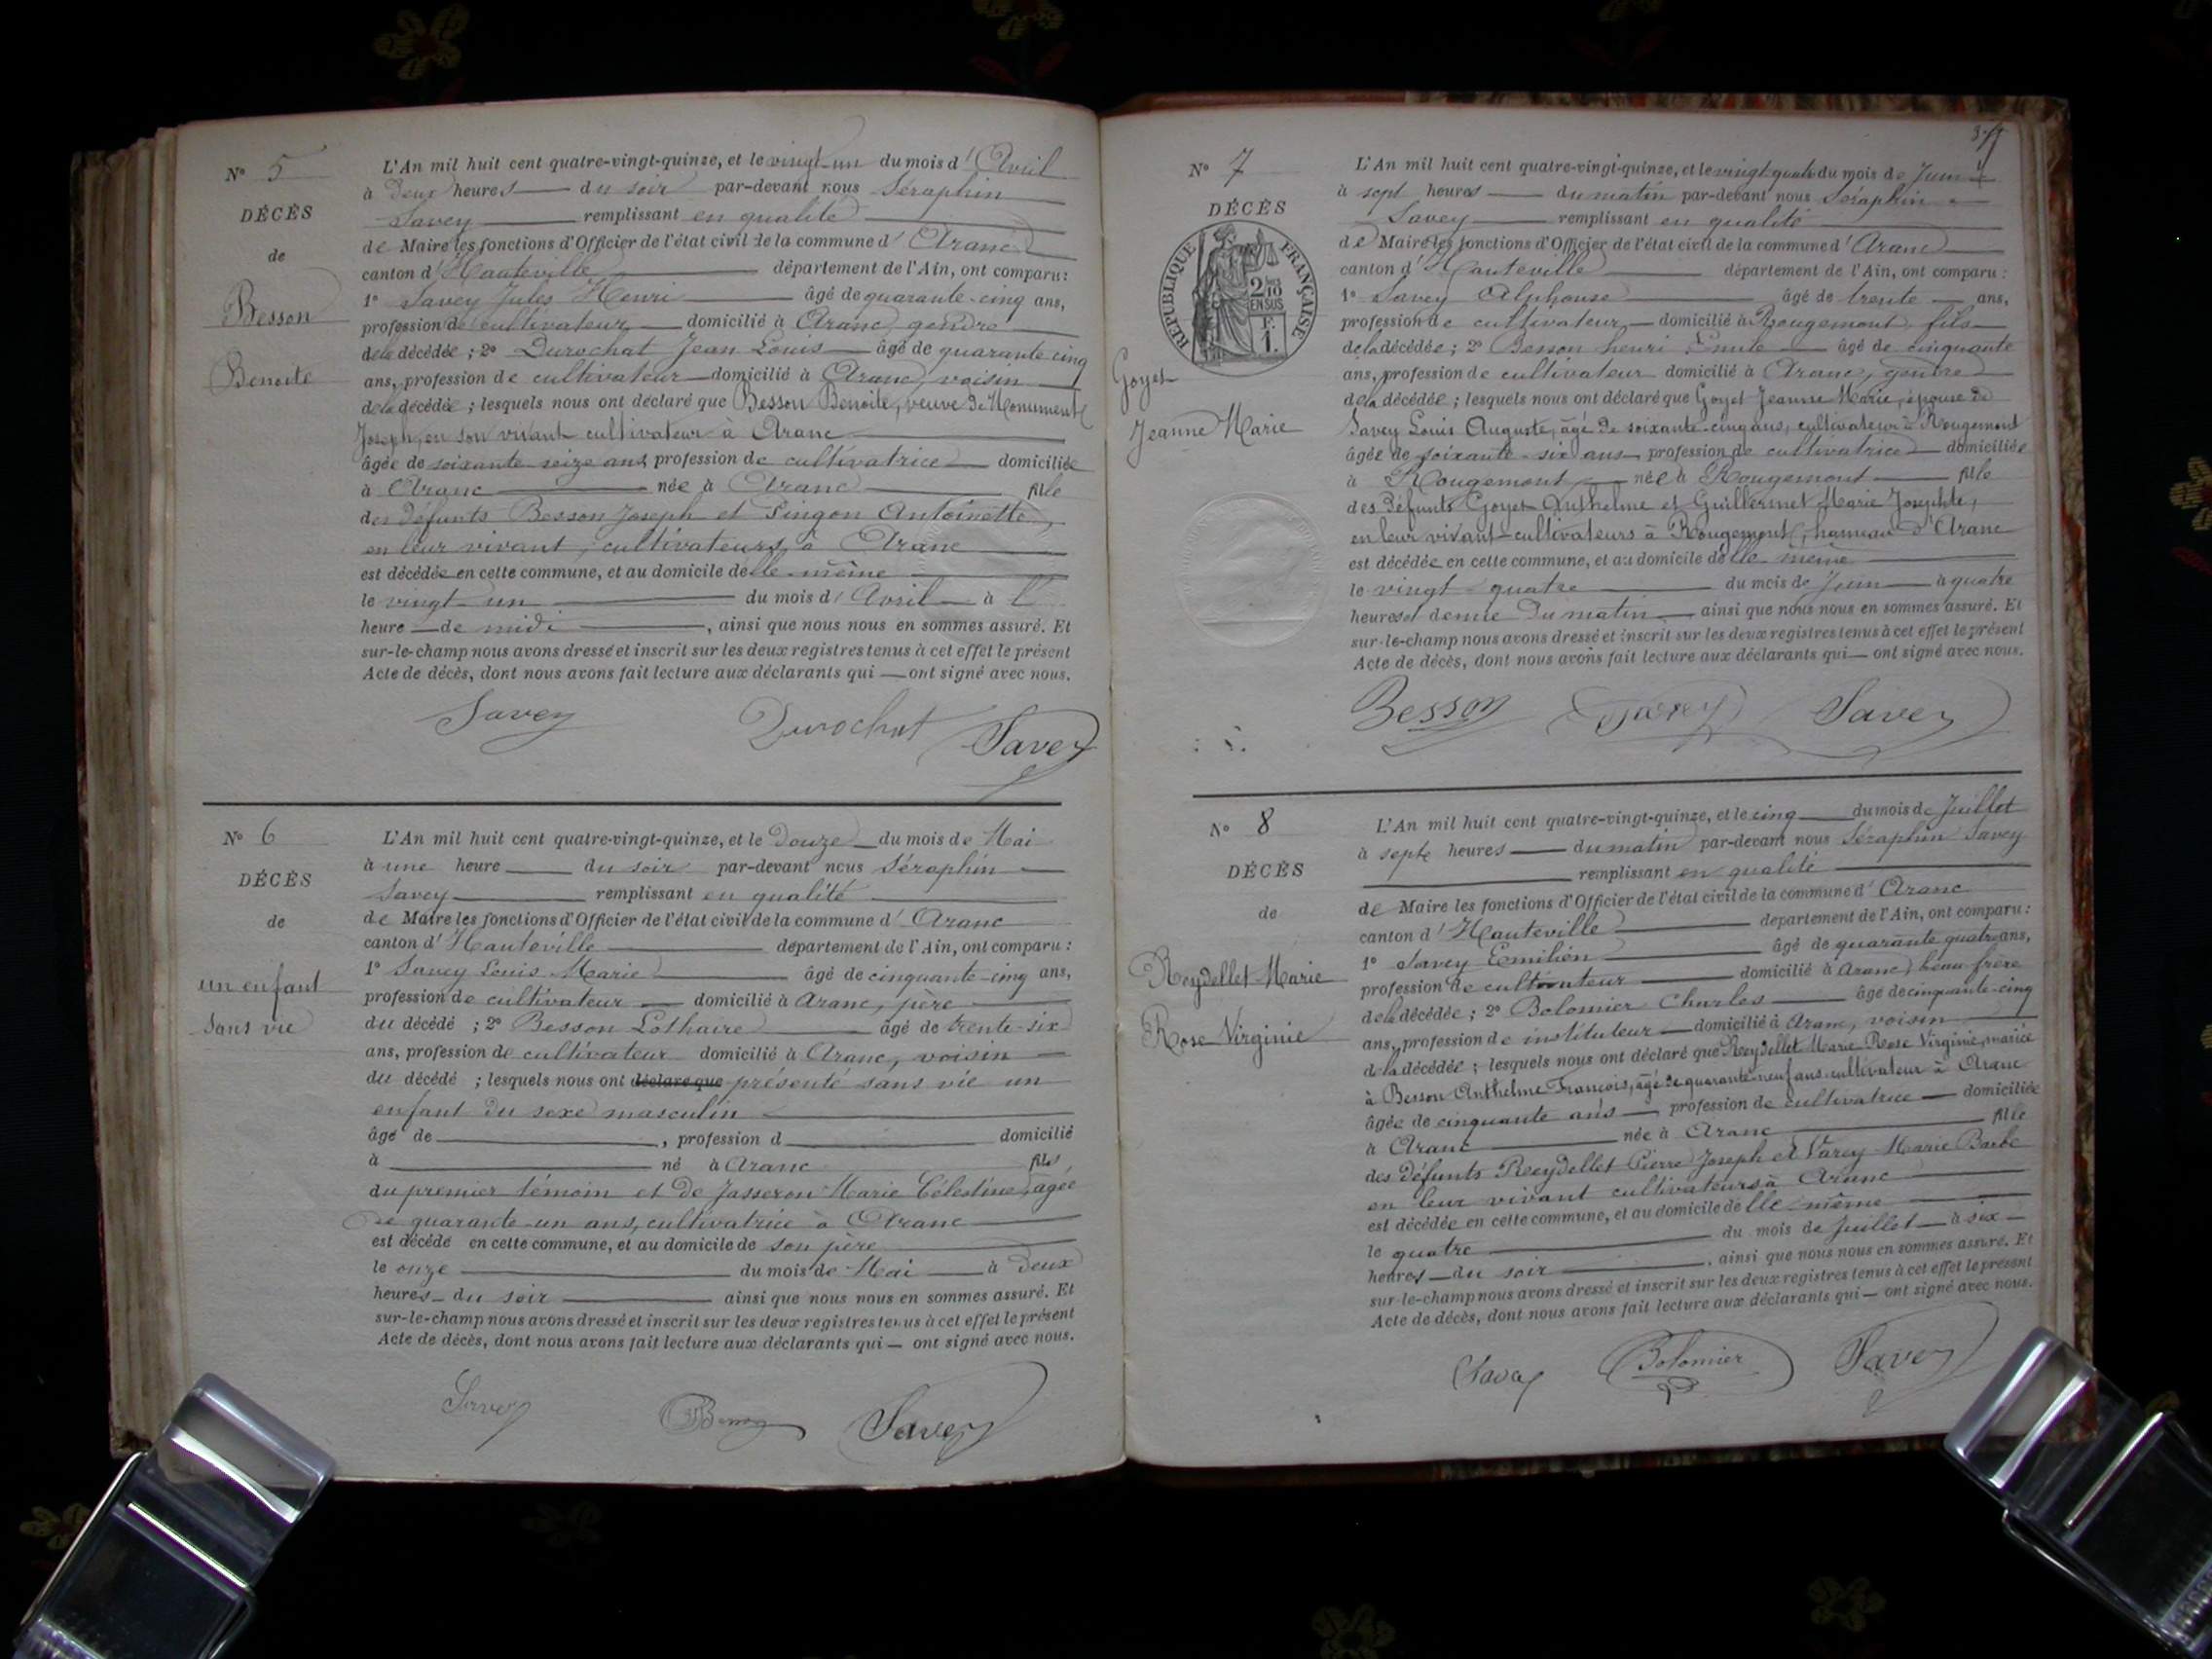 N° 5
DÉCÈS
de
Besson
Benoite
L'An mil huit cent quatre-vingt-quinze, et le vingt-un du mois d'Avril
à deux heures du soir par-devant nous Séraphin
Savey remplissant en qualité
de Maire les fonctions d'Officier de l'état civil de la commune d'Aranc
canton d'Hauteville département de l'Ain, ont comparu:
1° Savey Jules Henri âgé de quarante-cinq ans,
profession de cultivateur domicilié à Aranc, gendre
de la décédée; 2° Durochat Jean Louis âgé de quarante cinq
ans, profession de cultivateur domicilié à Aranc, voisin
de la décédée; lesquels nous ont déclaré que Besson Benoite, veuve de
Joseph, en son vivant cultivateur à Aranc
âgée de soixante-seize ans, profession de cultivatrice domiciliée
à Aranc née à Aranc fille
des défunts Besson Joseph et Pingon Antoinette,
en leur vivant, cultivateurs à Aranc
est décédée en cette commune, et au domicile d'elle-même
le vingt-un du mois d'Avril à l'
heure de midi, ainsi que nous nous en sommes assuré. Et
sur-le-champ nous avons dressé et inscrit sur les deux registres tenus à cet effet le présent
Acte de décès, dont nous avons fait lecture aux déclarants qui ont signé avec nous.
Savey Durochat Savey
N° 6
DÉCÈS
de
un enfant
sans vie
L'An mil huit cent quatre-vingt-quinze, et le douze du mois de Mai
à une heure du soir par-devant nous Séraphin
Savey remplissant en qualité
de Maire les fonctions d'Officier de l'état civil de la commune d'Aranc
canton d'Hauteville département de l'Ain, ont comparu:
1° Savey Louis Marie âgé de cinquante-cinq ans,
profession de cultivateur domicilié à Aranc, père
du décédé; 2° Besson Lothaire âgé de trente-six
ans, profession de cultivateur domicilié à Aranc, voisin
du décédé; lesquels nous ont déclaré que présenté sans vie un
enfant du sexe masculin
âgé de, profession d domicilié
à né à Aranc fils
du premier témoin et de Jasseron Marie Célestine, âgée
de quarante-un ans, cultivatrice à Aranc
est décédé en cette commune, et au domicile de son père
le onze du mois de Mai à deux
heures du soir ainsi que nous nous en sommes assuré. Et
sur-le-champ nous avons dressé et inscrit sur les deux registres tenus à cet effet le présent
Acte de décès, dont nous avons fait lecture aux déclarants qui ont signé avec nous.
Savey Savey
N° 7
DÉCÈS
RÉPUBLIQUE FRANÇAISE
2/10
EN SUS
1 F.
Goyet
Jeanne Marie
L'An mil huit cent quatre-vingt-quinze, et le vingt-quatre du mois de Juin
à sept heures du matin par-devant nous Séraphin
Savey remplissant en qualité
de Maire les fonctions d'Officier de l'état civil de la commune d'Aranc
canton d'Hauteville département de l'Ain, ont comparu:
1° Savey Alphonse âgé de trente ans,
profession de cultivateur domicilié à Rougemont, fils
de la décédée; 2° Besson henri Emile âgé de cinquante
ans, profession de cultivateur domicilié à Aranc, gendre
de la décédée; lesquels nous ont déclaré que Goyet Jeanne Marie, épouse de
Savey Louis Auguste, âgé de soixante-cinq ans, cultivateur à Rougemont
âgée de soixante-six ans, profession de cultivatrice domiciliée
à Rougemont née à Rougemont fille
des défunts Goyet Anthelme et Guillermet Marie Josephte,
en leur vivant cultivateurs à Rougemont, hameau d'Aranc
est décédée en cette commune, et au domicile d'elle-même
le vingt quatre du mois de Juin à quatre
heures et demie du matin ainsi que nous nous en sommes assuré. Et
sur-le-champ nous avons dressé et inscrit sur les deux registres tenus à cet effet le présent
Acte de décès, dont nous avons fait lecture aux déclarants qui ont signé avec nous.
Besson Savey Savey
N° 8
DÉCÈS
de
Reydellet Marie
Rose Virginie
L'An mil huit cent quatre-vingt-quinze, et le cinq du mois de Juillet
à sept heures du matin par-devant nous Séraphin Savey
remplissant en qualité
de Maire les fonctions d'Officier de l'état civil de la commune d'Aranc
canton d'Hauteville département de l'Ain, ont comparu:
1° Savey Emilien âgé de quarante quatre ans,
profession de cultivateur domicilié à Aranc, beau frère
de la décédée; 2° Bolomier Charles âgé de cinquante-cinq
ans, profession de instituteur domicilié à Aranc, voisin
de la décédée; lesquels nous ont déclaré que Reydellet Marie Rose Virginie, mariée
à Besson Anthelme François, âgé de quarante-neuf ans, cultivateur à Aranc
âgée de cinquante ans profession de cultivatrice domiciliée
à Aranc née à Aranc fille
des défunts Reydellet Pierre Joseph et Varey Marie Barbe
en leur vivant cultivateurs à Aranc
est décédée en cette commune, et au domicile d'elle-même
le quatre du mois de Juillet à six
heures du soir, ainsi que nous nous en sommes assuré. Et
sur-le-champ nous avons dressé et inscrit sur les deux registres tenus à cet effet le présent
Acte de décès, dont nous avons fait lecture aux déclarants qui ont signé avec nous.
Savey Bolomier Savey